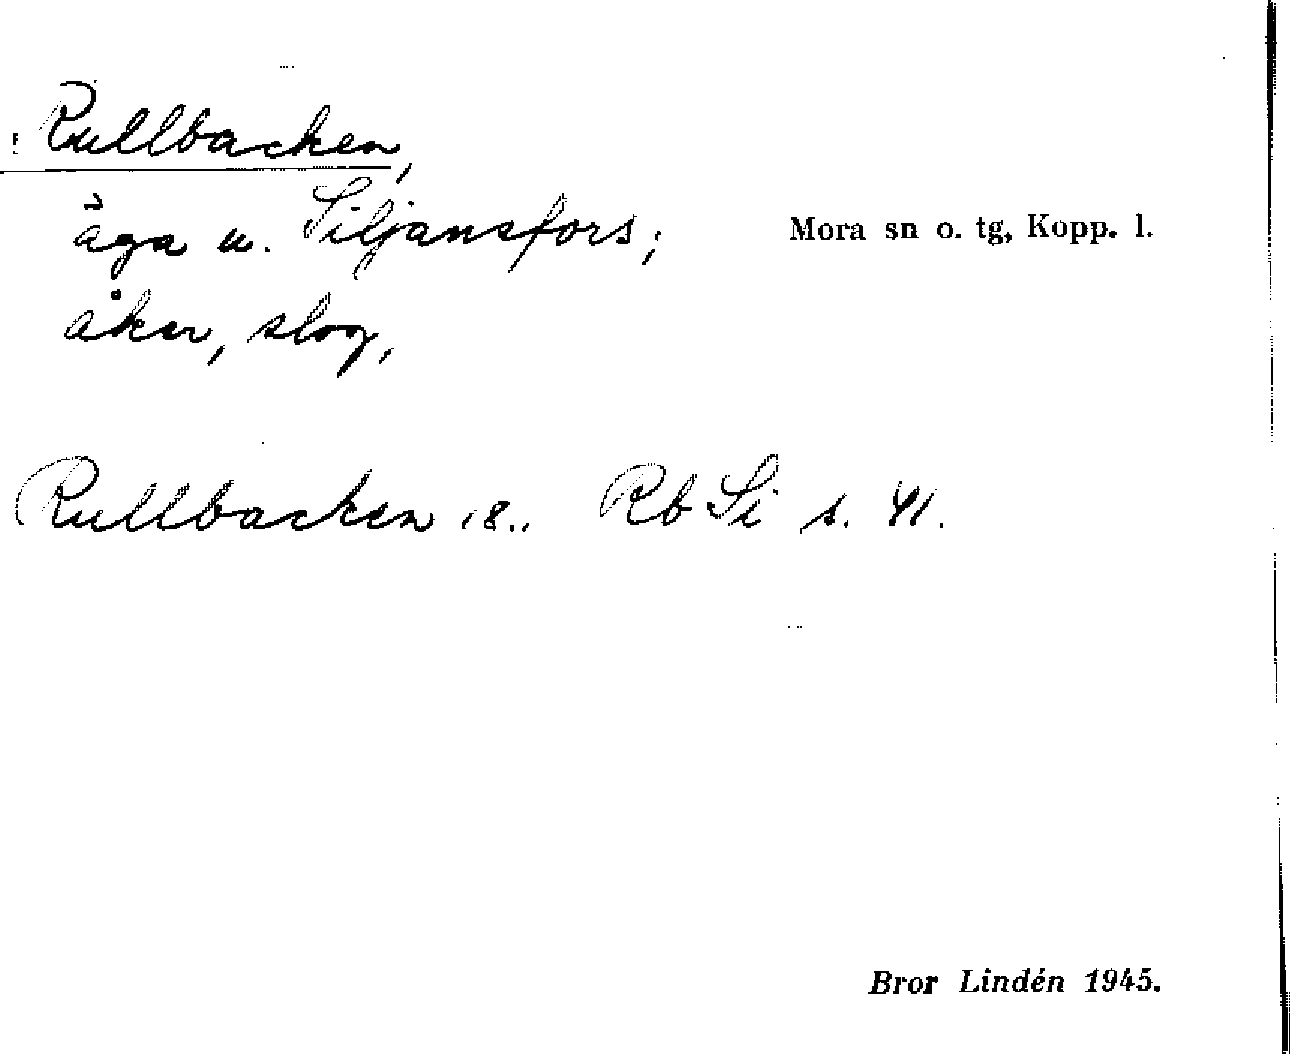 Rullbacken,
äga u. Siljansfors;
Mora sn o. tg, Kopp. l.
åker, slog,
Rullbacken 18.. Rb Si s. 41.
Bror Lindén 1945.